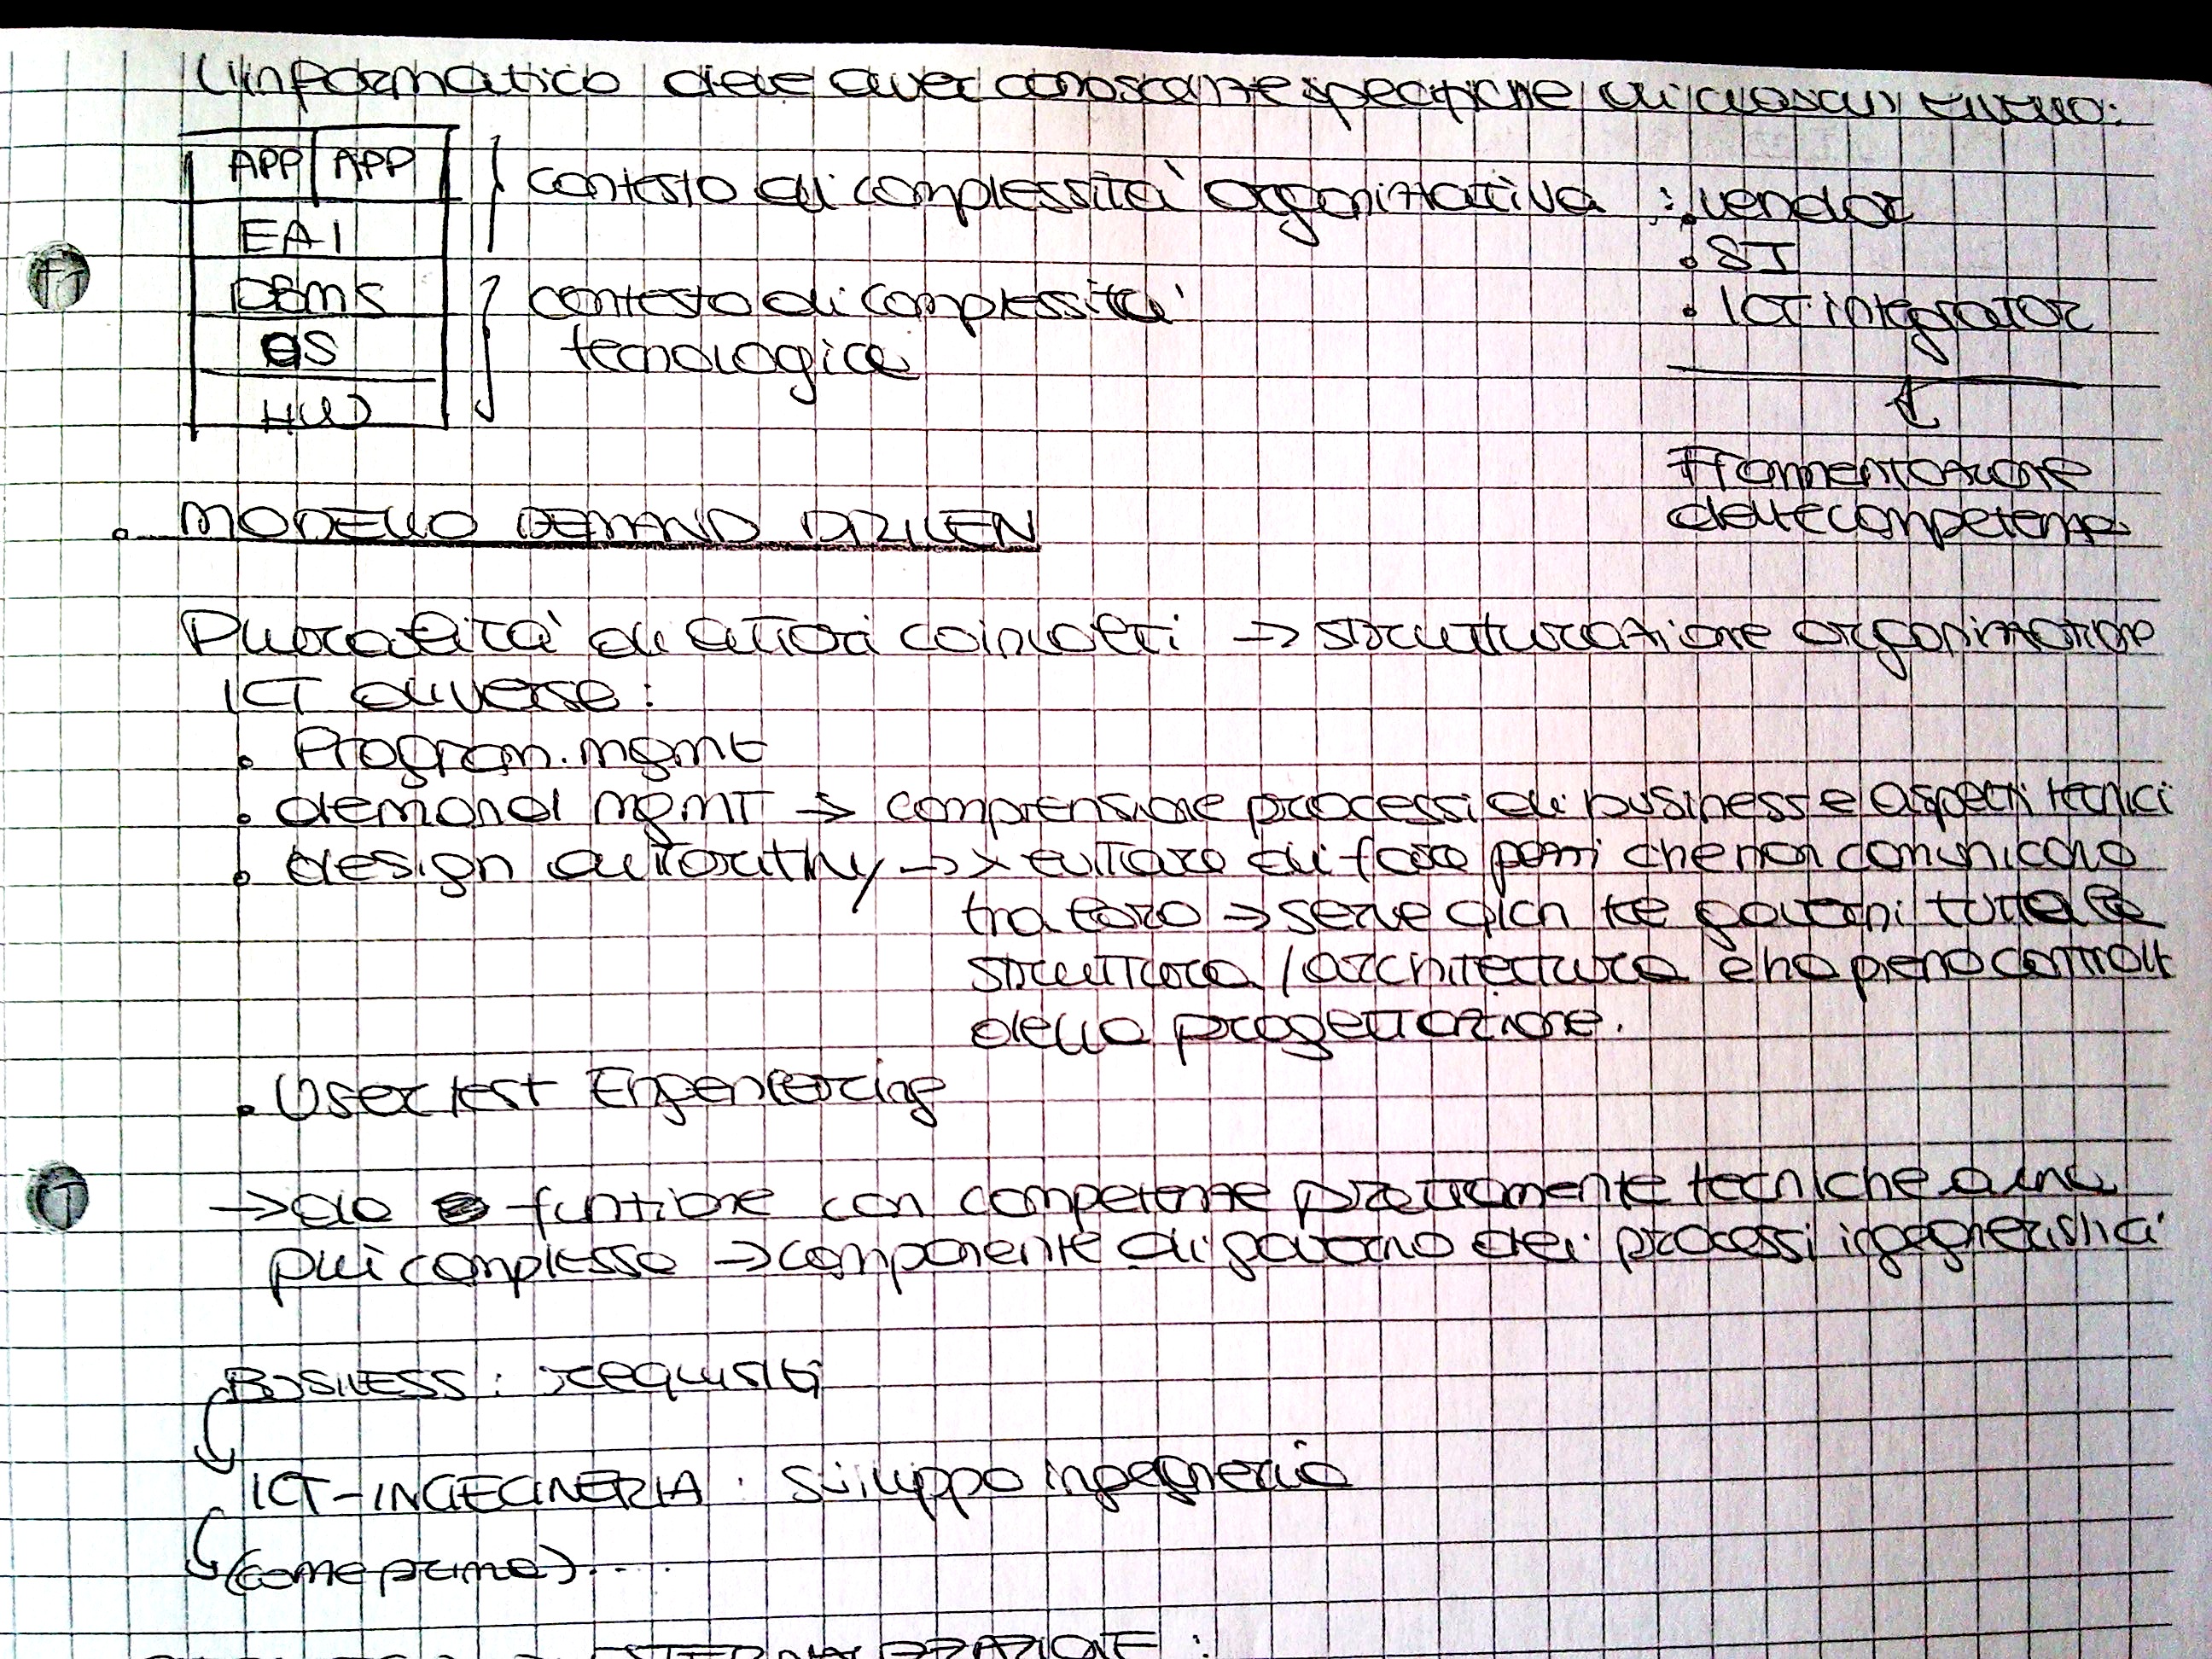 L'informatico deve aver conoscenze specifiche di ciascun livello:
APP | APP
EAI
DBMS
OS
HW
contesto di complessità organizzativa :
• vendor
• SI
• ICT integrator
contesto di complessità
tecnologica
Frammentazione
delle competenze
• MODELLO DEMAND DRIVEN
Pluralità di attori coinvolti -> strutturazione organizzative
ICT diverse:
• Program. mgmt
• demand mgmt -> comprensione processi di business e aspetti tecnici
• design authority -> x evitare di fare pezzi che non comunicano
tra loro -> serve qlcn ke governi tutta la
struttura / architettura e ha pieno controllo
della progettazione.
• User test Engeneering
-> da funzione con competenze prettamente tecniche a una
più complessa -> componente di governo dei processi ingegneristici
BUSINESS : requisiti
ICT-INGEGNERIA : sviluppo ingegneria
(come prima)....
ESTERNALIZZAZIONE :